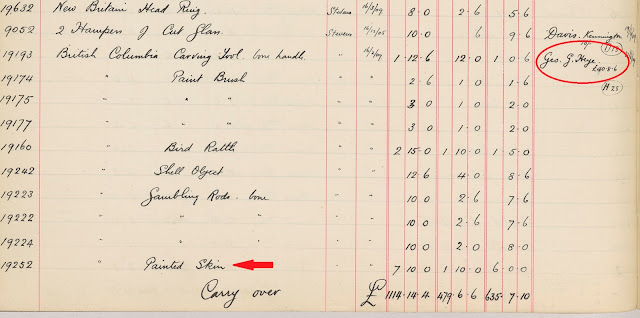 19632 New Britain Head Ring. Stevens 16/3/09 8 0 2 6 5 6
9052 2 Hampers of Cut Glass. Stevens 10 0 6 9 6 Davis. Kennington
19193 British Columbia Carving Tool. bone handle " 1 12 6 12 0 1 0 6 Geo. G. Heye. £40.8.6
19174 " Paint Brush " " 2 6 1 0 1 6 (H 25)
19175 " " " " " 3 0 1 0 2 0
19177 " " " " " 3 0 1 0 2 0
19160 " Bird Rattle " " 2 15 0 1 10 0 1 5 0
19242 " Shell Object " " 12 6 4 0 8 6
19223 " Gambling Rods. bone " " 10 0 2 6 7 6
19222 " " " " 10 0 2 6 7 6
19224 " " " " 10 0 2 0 8 0
19252 " Painted Skin " " 7 10 0 1 10 0 6 0 0
Carry over £ 1114 14 4 479 6 6 635 7 10